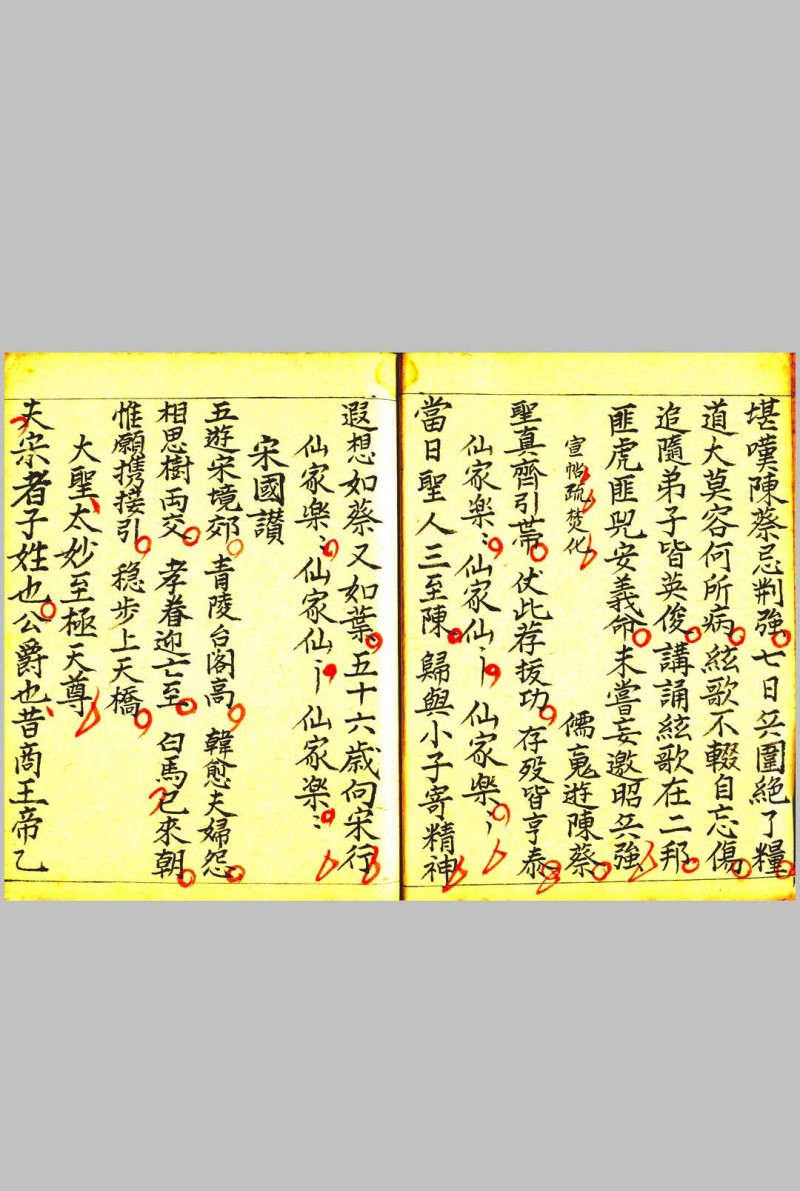 堪嘆陳蔡忌荆強七日兵圍絶了糧
道大莫容何所病絃歌不輟自忘傷
追隨弟子皆英俊講誦絃歌在二邦
匪虎匪兕安義命未嘗妄邀昭兵強
宣帖疏焚化 儒䰟遊陳蔡
聖真齊引帶 伏此荐拔功 存殁皆亨泰
仙家樂〻仙家仙〻仙家樂〻
當日聖人三至陳歸與小子寄精神
遐想如蔡又如葉五十六歲向宋行
仙家樂〻仙家仙〻仙家樂〻
宋國讃
五遊宋境郊 青陵台閣高 韓愈夫婦怨
相思樹両交 孝眷迎亡至 白馬已來朝
惟願携接引 穏步上天橋
大聖太妙至極天尊
夫宋者子姓也公爵也昔商王帝乙